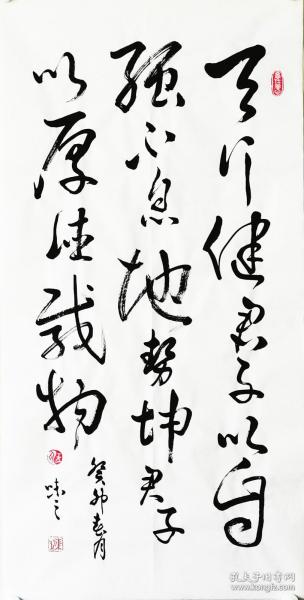 天行健君子以自
强不息地势坤君子
以厚德载物
癸卯春月
孔夫子旧书网